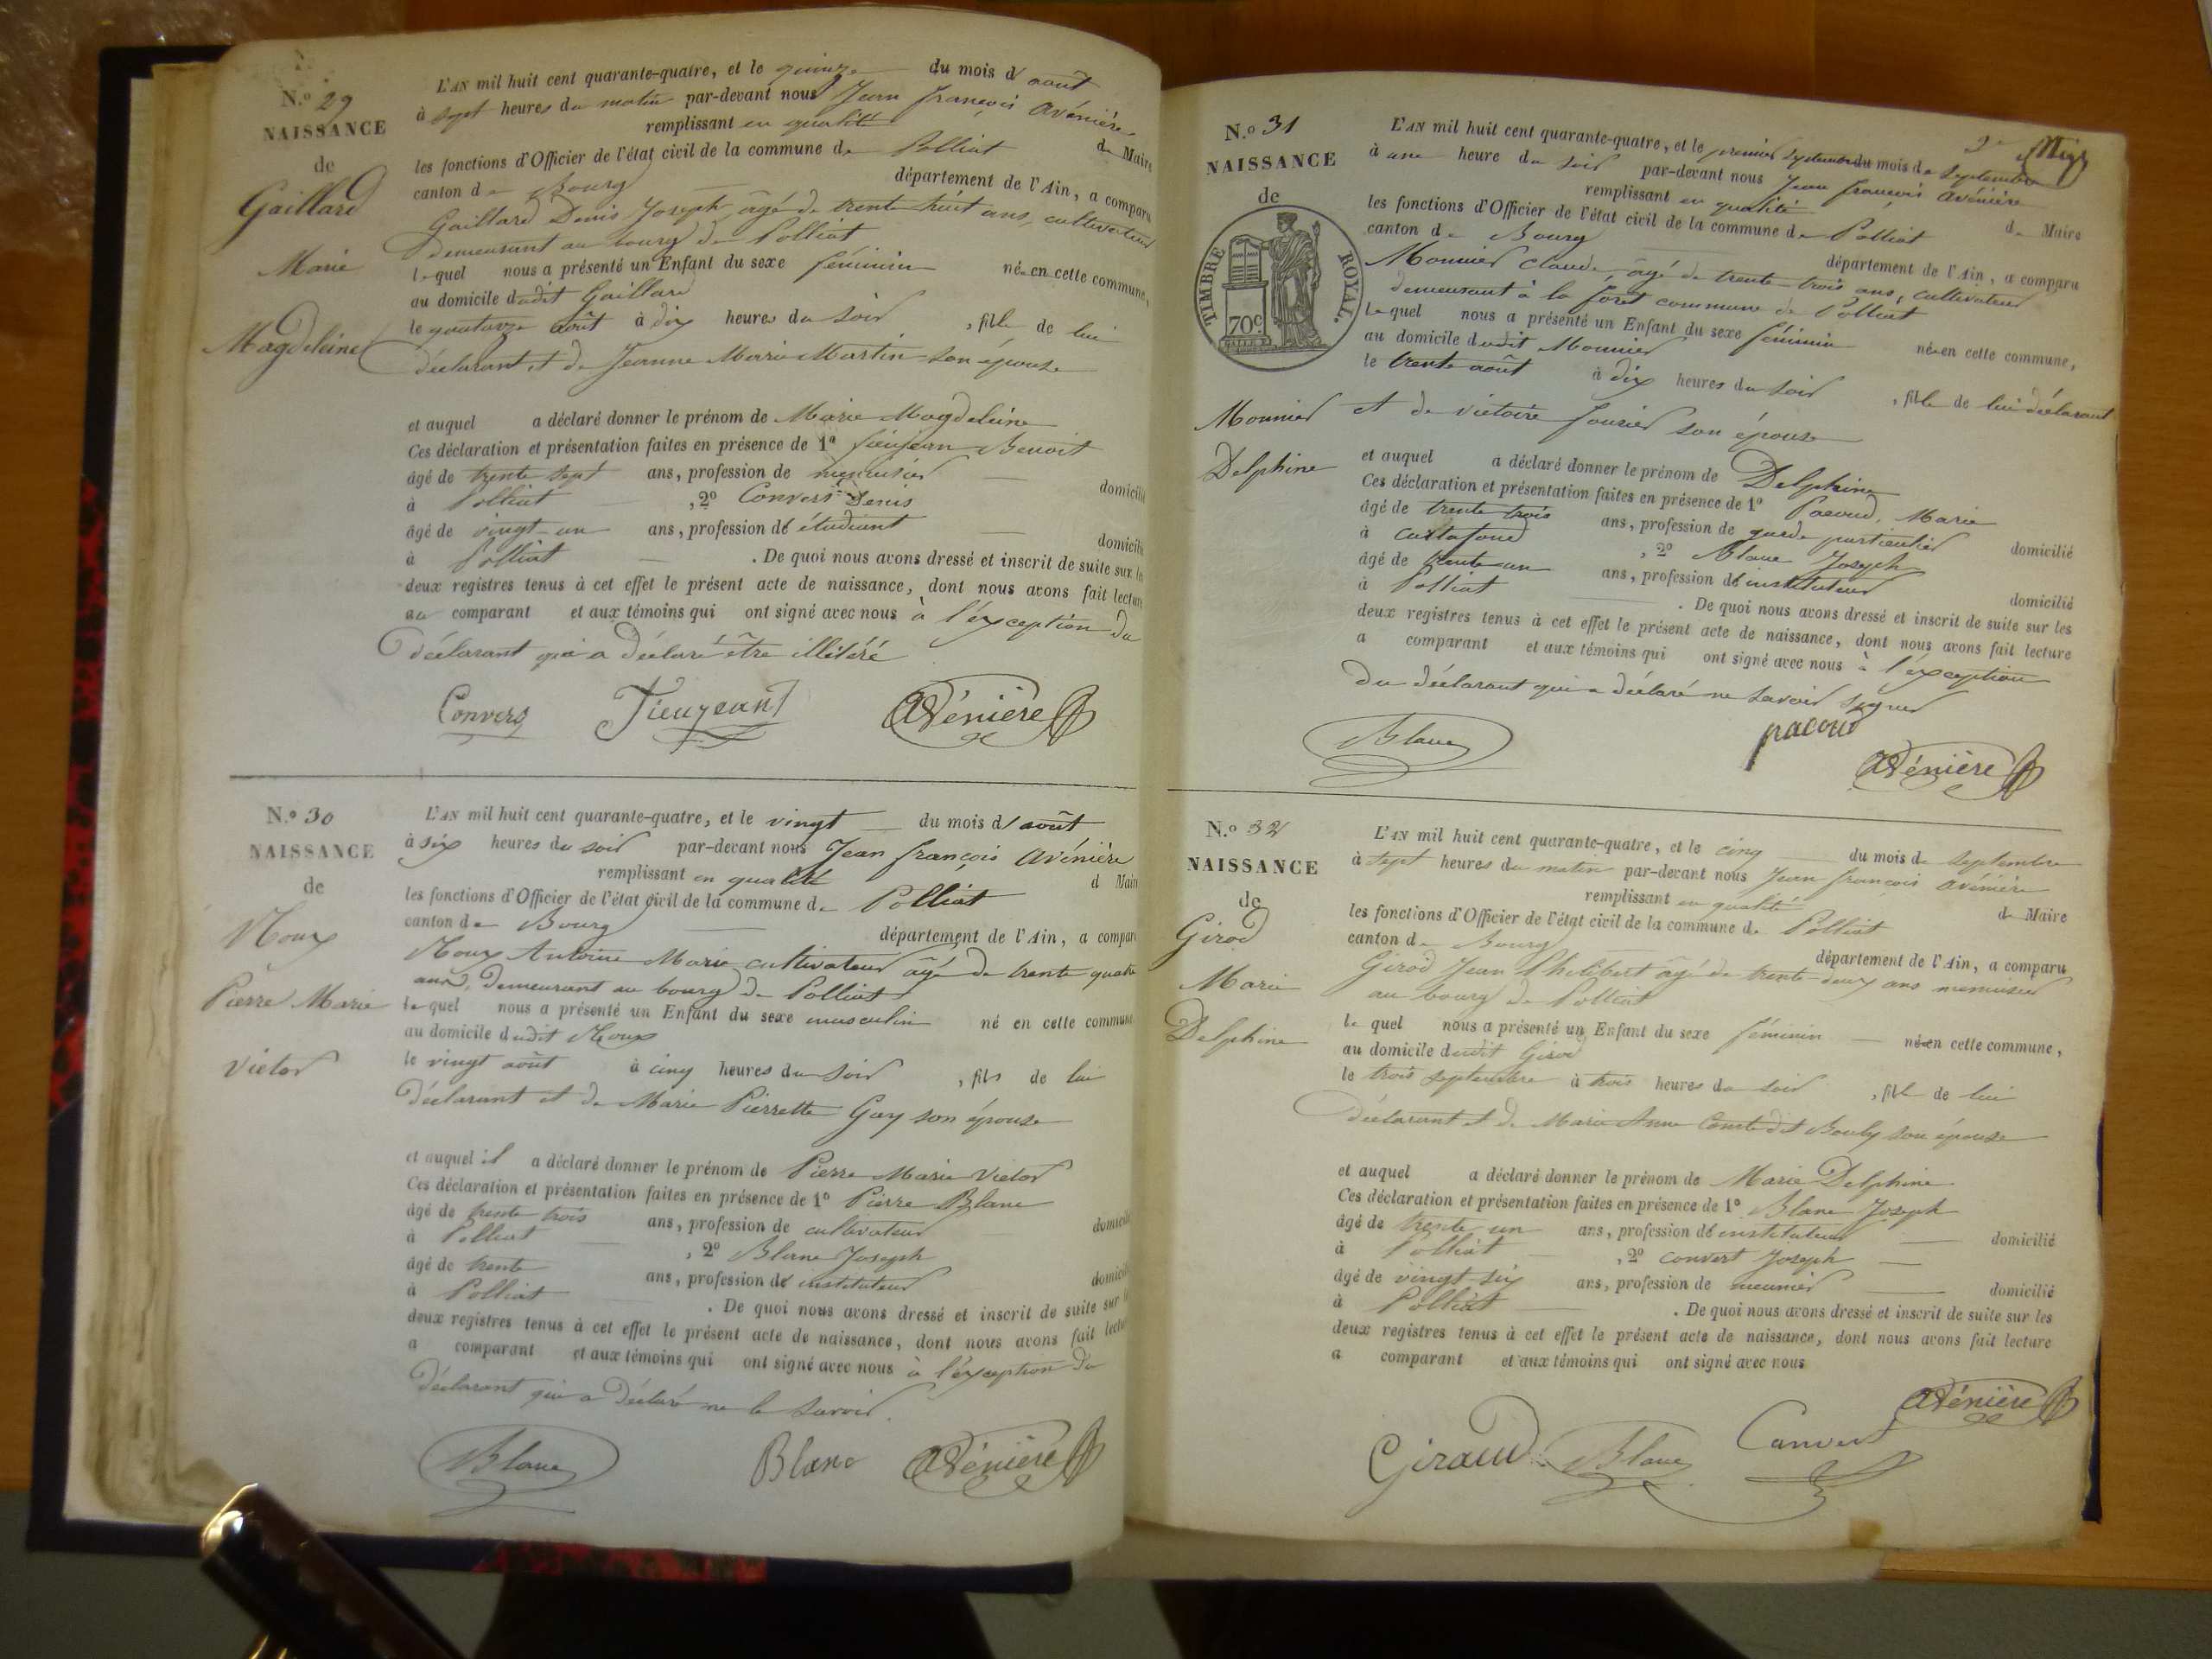 N.o 29
NAISSANCE
de
Gaillard
Marie
Magdeleine
L'AN mil huit cent quarante-quatre, et le quinze du mois d'août
à sept heures du matin par-devant nous Jean françois Avénière
remplissant en qualité de Maire
les fonctions d'Officier de l'état civil de la commune de Polliat
canton de Bourg département de l'Ain, a comparu
Gaillard Denis Joseph âgé de trente huit ans, cultivateur
demeurant au bourg de Polliat
lequel nous a présenté un Enfant du sexe féminin née en cette commune,
au domicile dudit Gaillard
le quatorze août à dix heures du soir, fille de lui
déclarant et de Jeanne Marie Martin son épouse
et auquel a déclaré donner le prénom de Marie Magdeleine
Ces déclaration et présentation faites en présence de 1o Tieujean Benoit
âgé de trente sept ans, profession de menuisier domicilié
à Polliat, 2o Convers Denis
âgé de vingt-un ans, profession d'étudiant domicilié
à Polliat. De quoi nous avons dressé et inscrit de suite sur les
deux registres tenus à cet effet le présent acte de naissance, dont nous avons fait lecture
au comparant et aux témoins qui ont signé avec nous à l'exception du
déclarant qui a déclaré être illétéré
Convers Tieujean Avénière
N.o 30
NAISSANCE
de
Moux
Pierre Marie
Victor
L'AN mil huit cent quarante-quatre, et le vingt du mois d'août
à six heures du soir par-devant nous Jean françois Avénière
remplissant en qualité d Maire
les fonctions d'Officier de l'état civil de la commune de Polliat
canton de Bourg département de l'Ain, a comparu
Moux Antoine Marie cultivateur âgé de trente quatre
ans, demeurant au bourg de Polliat
lequel nous a présenté un Enfant du sexe masculin né en cette commune
au domicile dudit Moux
le vingt août à cinq heures du soir, fils de lui
déclarant et de Marie Pierrette Guy son épouse
et auquel il a déclaré donner le prénom de Pierre Marie Victor
Ces déclaration et présentation faites en présence de 1o Pierre Blanc
âgé de trente trois ans, profession de cultivateur domicilié
à Polliat, 2o Blanc Joseph
âgé de trente ans, profession d'instituteur domicilié
à Polliat. De quoi nous avons dressé et inscrit de suite sur
deux registres tenus à cet effet le présent acte de naissance, dont nous avons fait lecture
a comparant et aux témoins qui ont signé avec nous à l'exception du
déclarant qui a déclaré ne le savoir.
Blanc Blanc Avénière
N.o 31
NAISSANCE
de
TIMBRE ROYAL.
70c
Monnier
Delphine
L'AN mil huit cent quarante-quatre, et le premier septembre du mois de septembre
à une heure du soir par-devant nous Jean françois Avénière
remplissant en qualité de Maire
les fonctions d'Officier de l'état civil de la commune de Polliat
canton de Bourg département de l'Ain, a comparu
Monnier Claude, âgé de trente-trois ans, cultivateur
demeurant à la foret commune de Polliat
lequel nous a présenté un Enfant du sexe féminin née en cette commune,
au domicile dudit Monnier
le trente août à dix heures du soir, fille de lui déclarant
et de victoire fourier son épouse
et auquel a déclaré donner le prénom de Delphine
Ces déclaration et présentation faites en présence de 1o Pacoud, Marie
âgé de trente trois ans, profession de garde particulier domicilié
à curtafond, 2o Blanc Joseph
âgé de trente-un ans, profession d'instituteur domicilié
à Polliat. De quoi nous avons dressé et inscrit de suite sur les
deux registres tenus à cet effet le présent acte de naissance, dont nous avons fait lecture
a comparant et aux témoins qui ont signé avec nous à l'exception
du déclarant qui a déclaré ne savoir signer
Blanc pacoud Avénière
N.o 32
NAISSANCE
de
Girod
Marie
Delphine
L'AN mil huit cent quarante-quatre, et le cinq du mois de septembre
à sept heures du matin par-devant nous Jean françois Avénière
remplissant en qualité de Maire
les fonctions d'Officier de l'état civil de la commune de Polliat
canton de Bourg département de l'Ain, a comparu
Girod Jean Philibert âgé de trente-deux ans menuisier
au bourg de Polliat
lequel nous a présenté un Enfant du sexe féminin née en cette commune,
au domicile dudit Girod
le trois septembre à trois heures du soir, fille de lui
déclarant et de Marie Anne Comte dit Bouly son épouse
et auquel a déclaré donner le prénom de Marie Delphine
Ces déclaration et présentation faites en présence de 1o Blanc Joseph
âgé de trente-un ans, profession d'instituteur domicilié
à Polliat, 2o convert Joseph
âgé de vingt-six ans, profession de meunier domicilié
à Polliat. De quoi nous avons dressé et inscrit de suite sur les
deux registres tenus à cet effet le présent acte de naissance, dont nous avons fait lecture
a comparant et aux témoins qui ont signé avec nous
Avénière
Giraud Blanc Convert